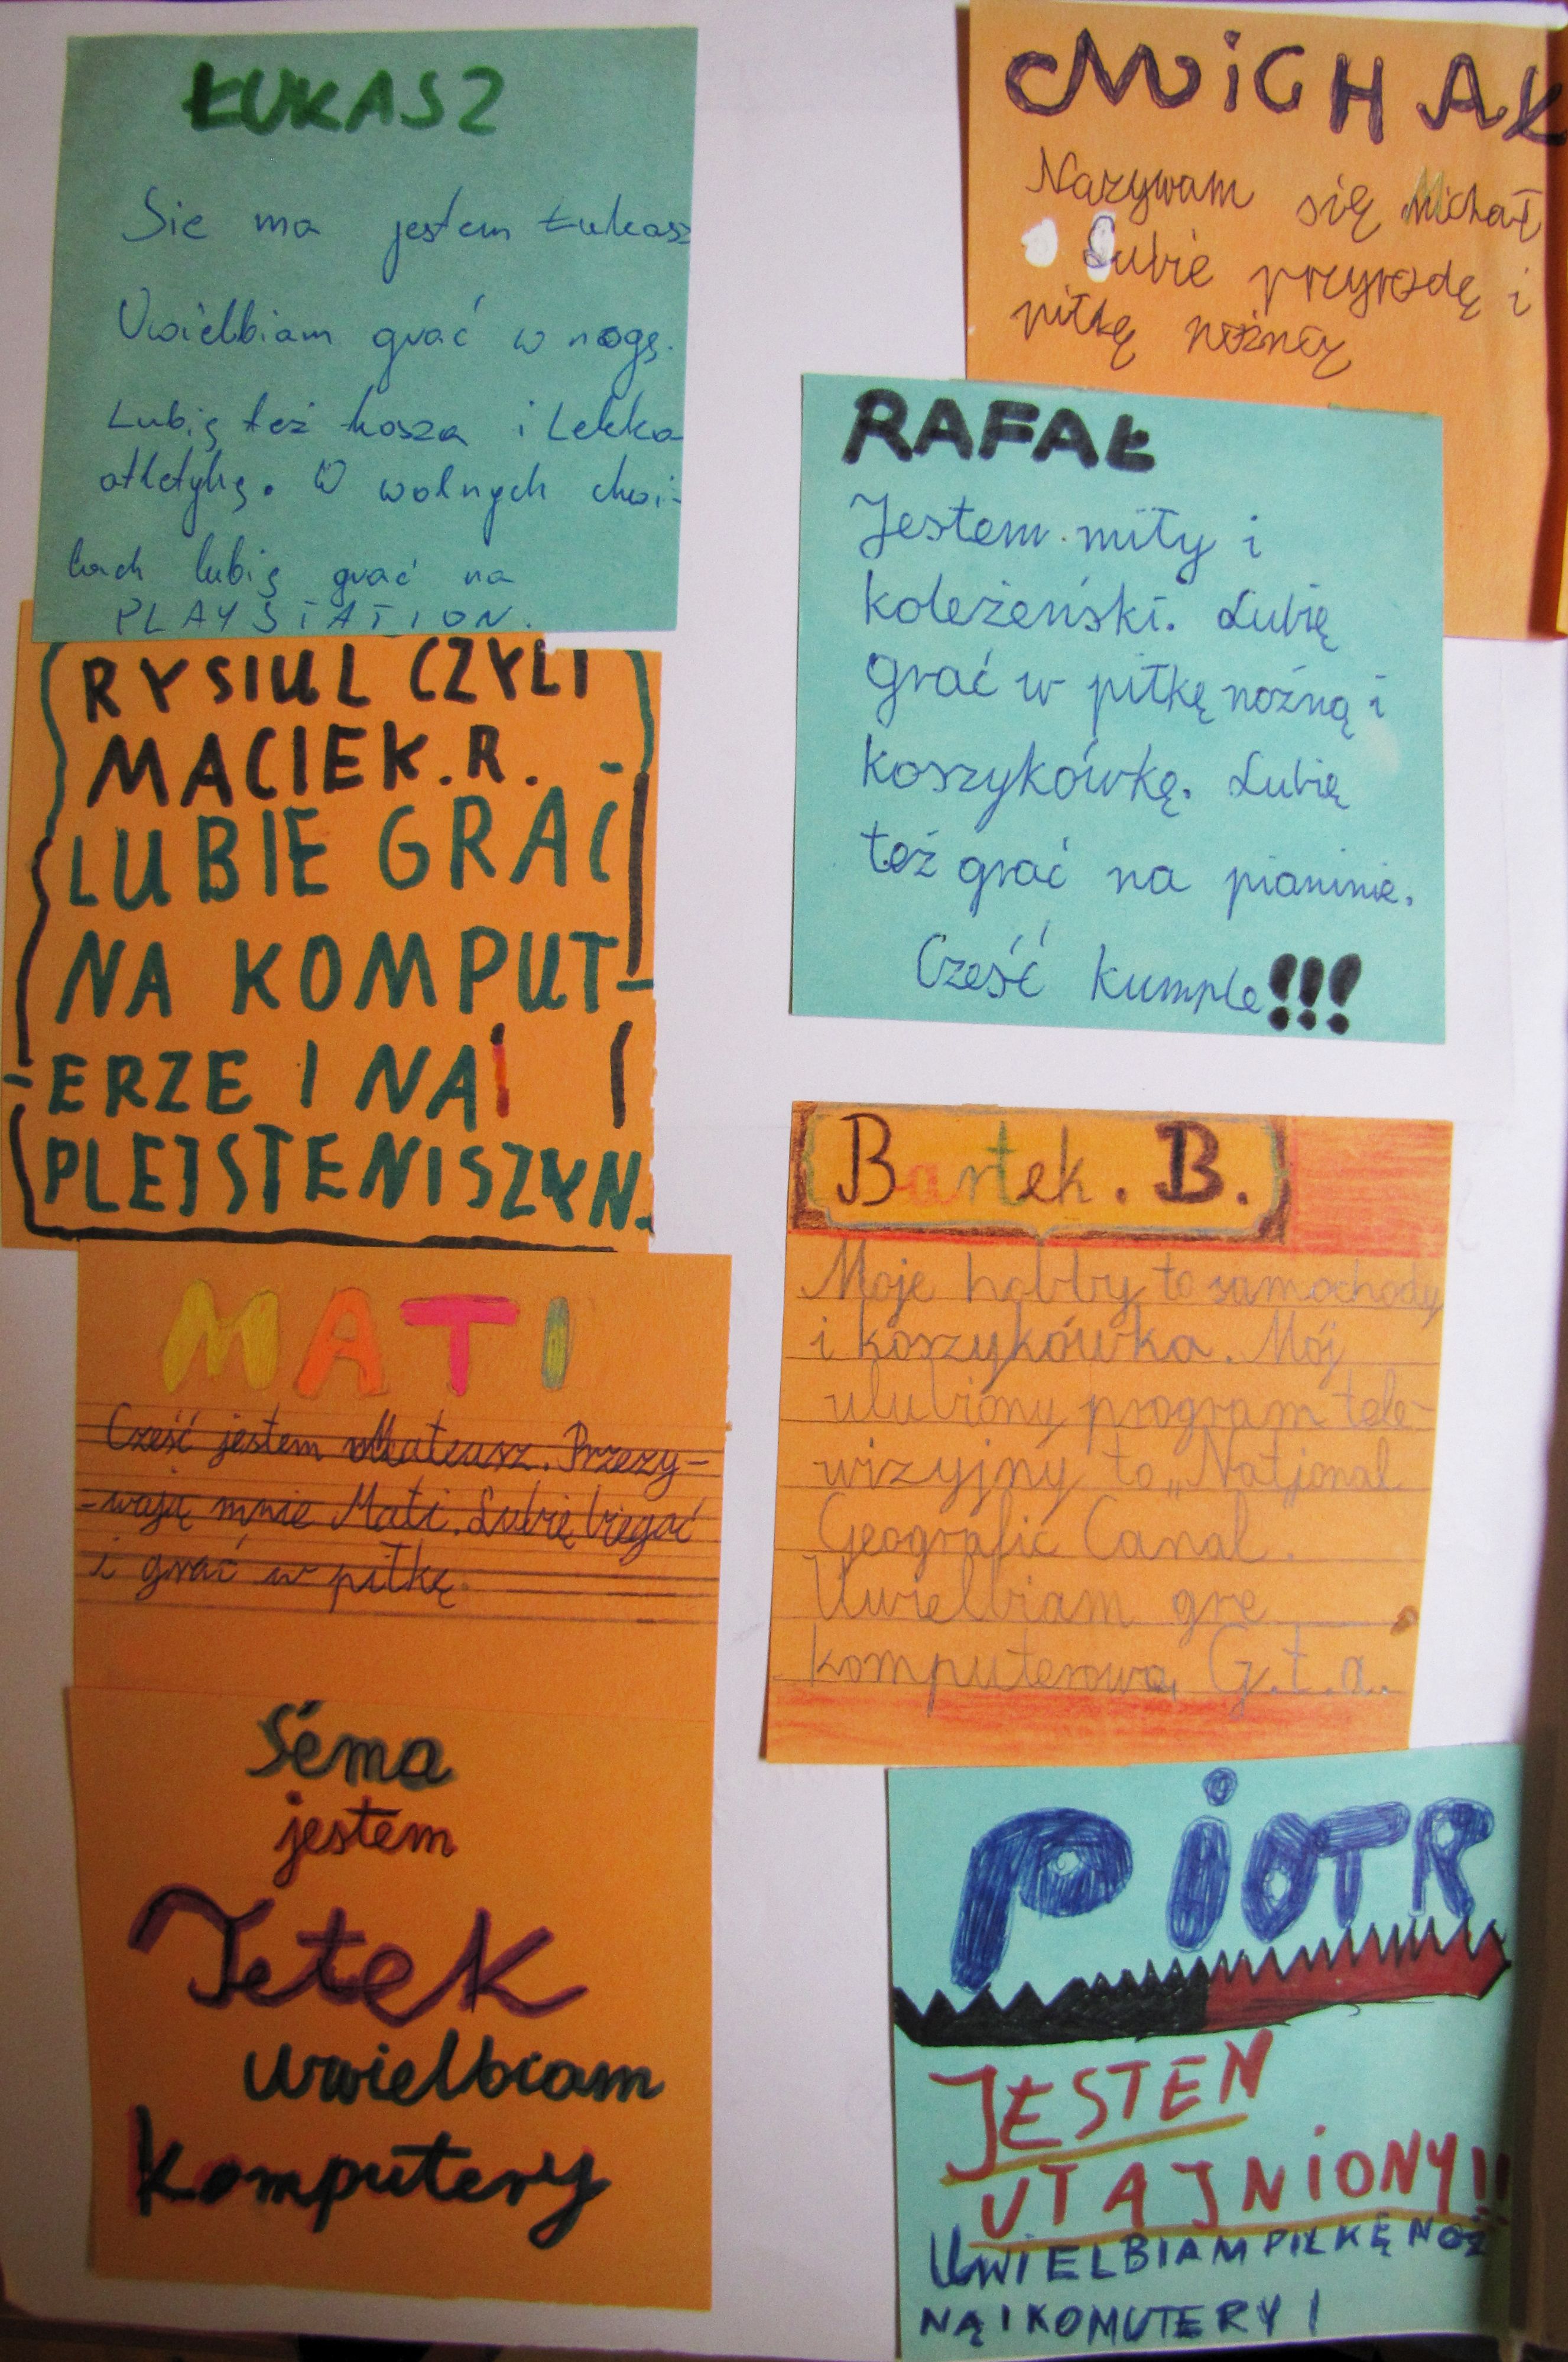 ŁUKASZ
Sie ma jestem Łukasz
Uwielbiam grać w nogę.
Lubię też kosza i Lekka
atletykę. W wolnych chwi-
lach lubię grać na
PLAYSTATION.
RYSIUL CZYLI
MACIEK.R.
LUBIE GRAĆ
NA KOMPUT-
ERZE I NA
PLEJSTENISZYN.
MATI
Cześć jestem Mateusz. Przezy-
-wają mnie Mati. Lubię biegać
i grać w piłkę.
Siema
jestem
Jetek
uwielbiam
komputery
MiCHAŁ
Nazywam się Michał
Lubie przyrodę i
piłkę nożną
RAFAŁ
Jestem miły i
koleżeński. Lubię
grać w piłkę nożną i
koszykówkę. Lubię
też grać na pianinie.
Cześć kumple!!!
Bartek. B.
Moje hobby to samochody
i koszykówka. Mój
ulubiony program tele-
wizyjny to „National
Geografic Canal.
Uwielbiam grę
komputerową G.t.a.
PiOTR
JESTEM
UTAJNiONY!!
UWiELBIAM PiŁKĘ NOŻ
NĄ I KOMUTERY !